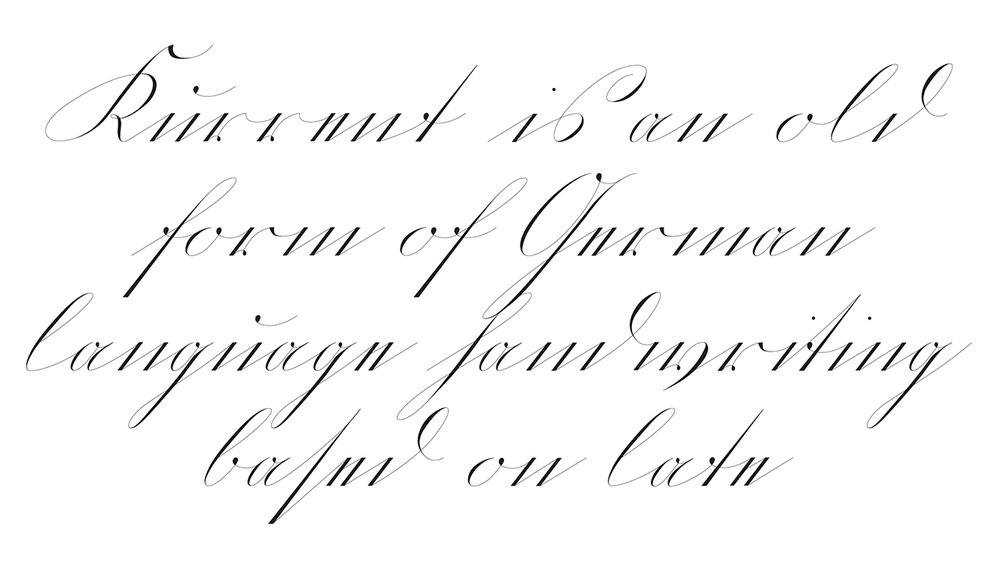 Kurrent is an old
form of German
language handwriting
baſed on late